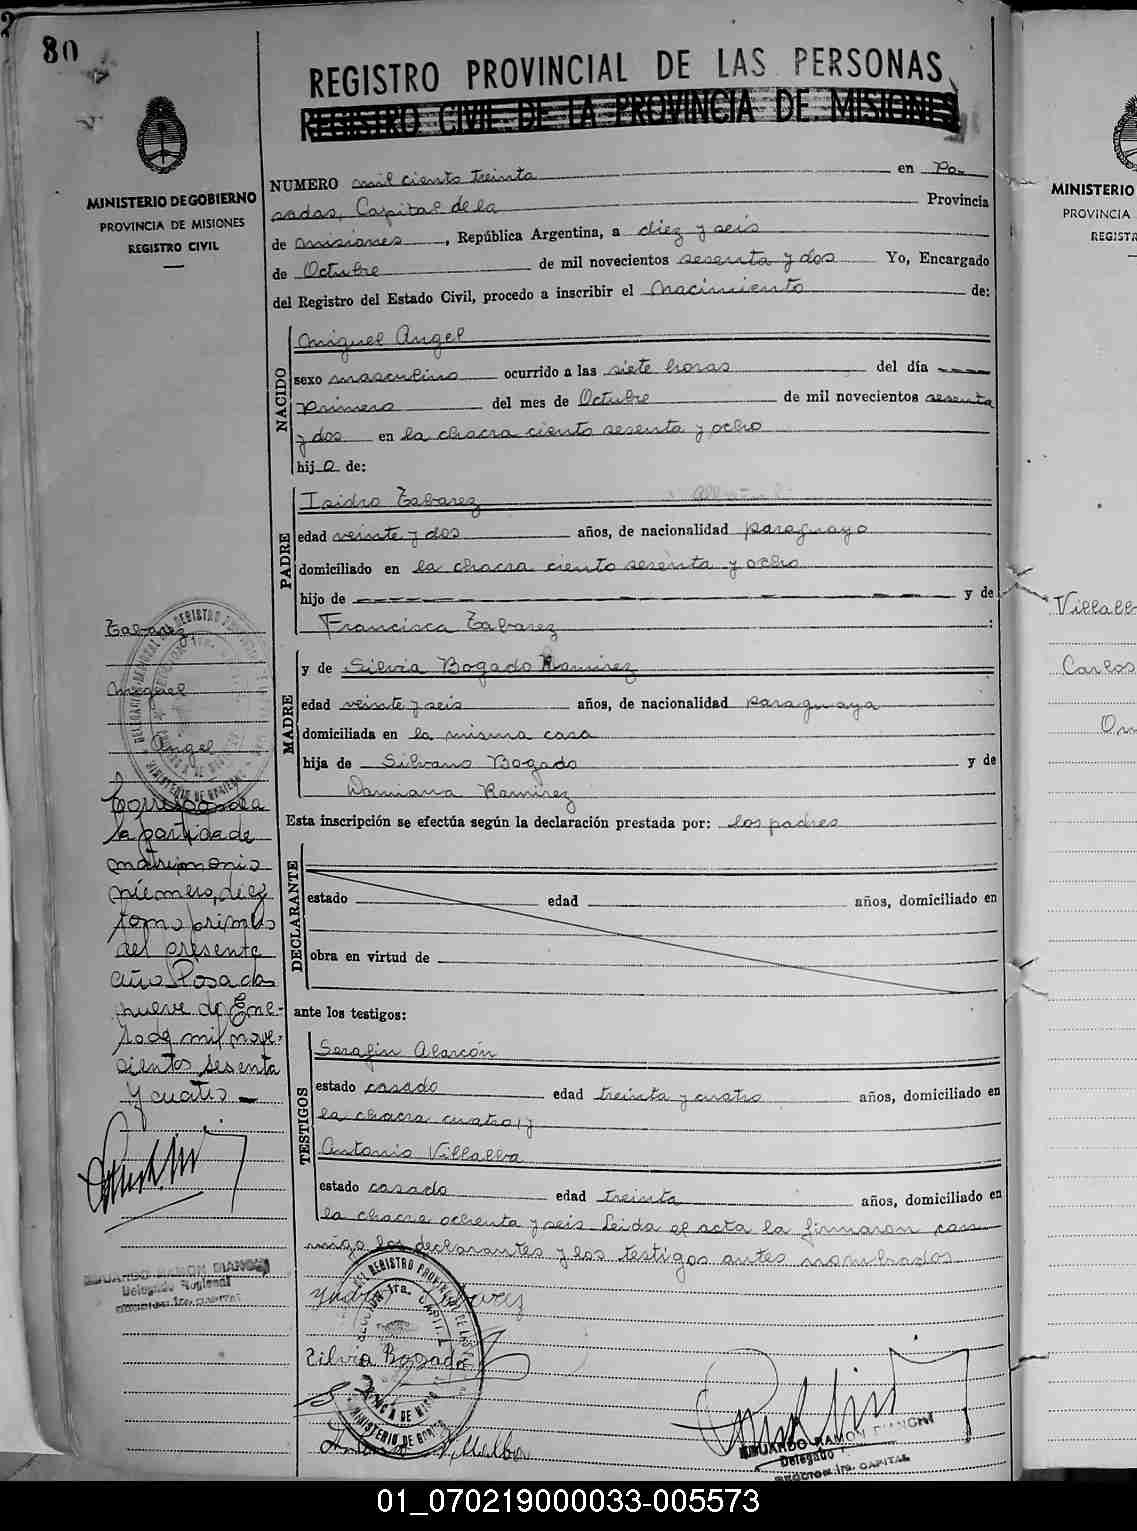 80
REGISTRO PROVINCIAL DE LAS PERSONAS
REGISTRO CIVIL DE LA PROVINCIA DE MISIONES
MINISTERIO DE GOBIERNO
PROVINCIA DE MISIONES
REGISTRO CIVIL
NUMERO mil ciento treinta en Po-
sadas, Capital de la Provincia
de Misiones, República Argentina, a diez y seis
de Octubre de mil novecientos sesenta y dos Yo, Encargado
del Registro del Estado Civil, procedo a inscribir el Nacimiento de:
NACIDO
Miguel Angel
sexo masculino ocurrido a las siete horas del día
primero del mes de Octubre de mil novecientos sesenta
y dos en la chacra ciento sesenta y ocho
hijo de:
PADRE
Isidro Tabarez
edad veinte y dos años, de nacionalidad paraguayo
domiciliado en la chacra ciento sesenta y ocho
hijo de y de
Francisca Tabarez
MADRE
y de Silvia Bogado Ramirez
edad veinte y seis años, de nacionalidad paraguaya
domiciliada en la misma casa
hija de Silvano Bogado y de
Damiana Ramirez
Esta inscripción se efectúa según la declaración prestada por: los padres
DECLARANTE
estado edad años, domiciliado en
obra en virtud de
ante los testigos:
TESTIGOS
Serafin Alarcón
estado casado edad treinta y cuatro años, domiciliado en
la chacra cuatro, y
Antonio Villalba
estado casado edad treinta años, domiciliado en
la chacra ochenta y seis. Leida el acta la firmaron con-
migo los declarantes y los testigos antes nombrados.
Silvia Bogado
Villalba
EDUARDO RAMON BIANCHI
Delegado
SECCION 1ra. CAPITAL
Tabarez
Miguel
Angel
Corresponde a
la partida de
matrimonio
número, diez
tomo primero
del presente
año Posadas
nueve de Ene-
ro de mil nove-
cientos sesenta
y cuatro
EDUARDO RAMON BIANCHI
Delegado Regional
SECCION 1ra. CAPITAL
MINISTERIO
PROVINCIA
REGISTR
Villalb
Carlos
01_070219000033-005573